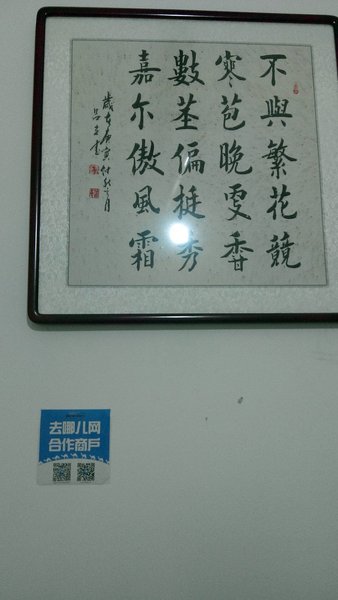 不與繁花競
寒苞晚更香
數莖偏挺秀
嘉尔傲風霜
歲在庚寅仲秋之月
去哪儿网
合作商户